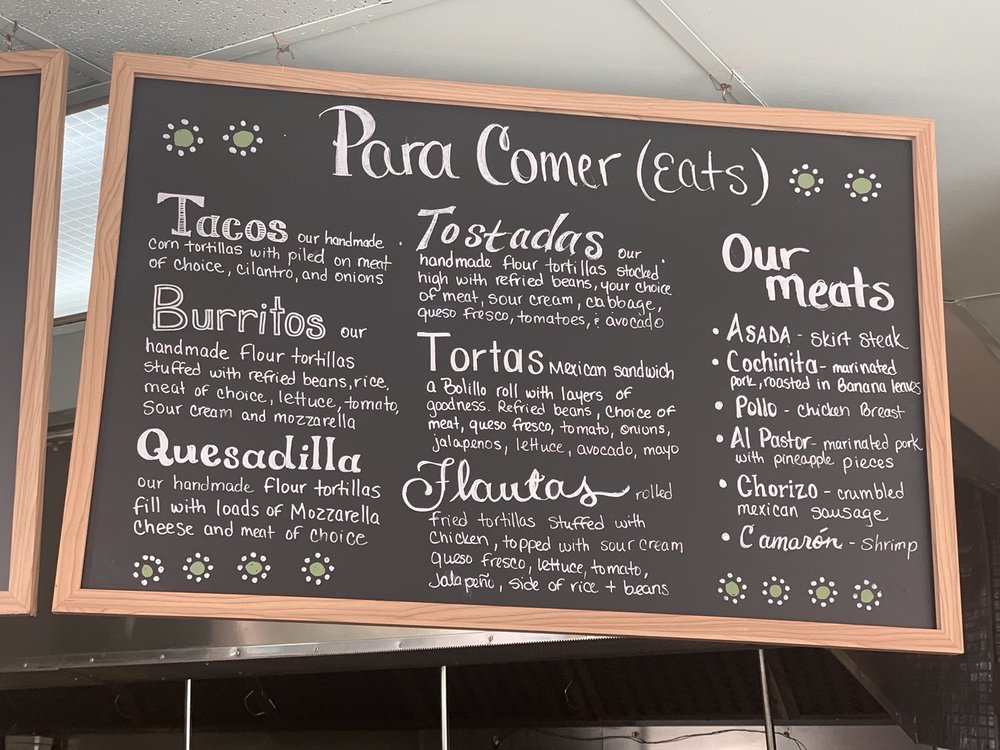 Para Comer (Eats)
Tacos our handmade
corn tortillas with piled on meat
of choice, cilantro, and onions
Burritos our
handmade flour tortillas
stuffed with refried beans, rice,
meat of choice, lettuce, tomato,
sour cream and mozzarella
Quesadilla
our handmade flour tortillas
fill with loads of Mozzarella
cheese and meat of choice
Tostadas our
handmade flour tortillas stacked
high with refried beans, your choice
of meat, sour cream, cabbage,
queso fresco, tomatoes, & avocado
Tortas Mexican sandwich
a Bolillo roll with layers of
goodness. Refried beans, choice of
meat, queso fresco, tomato, onions,
jalapenos, lettuce, avocado, mayo
Flautas rolled
fried tortillas stuffed with
chicken, topped with sour cream
queso fresco, lettuce, tomato,
Jalapeño, side of rice + beans
Our
meats
• ASADA - skirt steak
• Cochinita - marinated
pork, roasted in Banana leaves
• Pollo - chicken Breast
• Al Pastor - marinated pork
with pineapple pieces
• Chorizo - crumbled
mexican sausage
• Camarón - shrimp